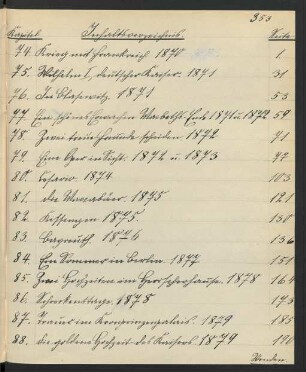 350
Kapitel Inhaltsverzeichnis Seite
74. Krieg mit Frankreich 1870 1
75. Wilhelm I, deutscher Kaiser. 1871 31
76. In Blasewitz. 1871 53
77. Ein schönes Ende 1871 u 1872 59
78. Zwei treue Freunde scheiden. 1872 71
79. Eine Oper in Sicht. 1872 u. 1873 97
80. 1874. 103
81. Der 1875 121
82. Kissingen 1875. 130
83. Bayreuth. 1876 136
84. Ein Sommer in Berlin. 1877 151
85. Zwei Hochzeiten im Herrscherhause. 1878 164
86. Schreckenstage. 1878 175
87. Trauer im Kronprinzenpalais. 1879 185
88. Die goldene Hochzeit des Kaisers. 1879 190
Wenden.